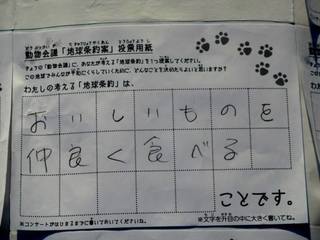 動物会議「地球条約案」投票用紙
「動物会議」に、あなたが考える「地球条約」を1つ提案してください。
この地球でみんなが平和にくらしていくために、どんなことを決めたらよいと思いますか?
わたしの考える「地球条約」は、
おいしいものを
仲良く食べる
ことです。
※コンサートがはじまるまでに書いておいてくださいね。
※文字を升目の中に大きく書いてね。